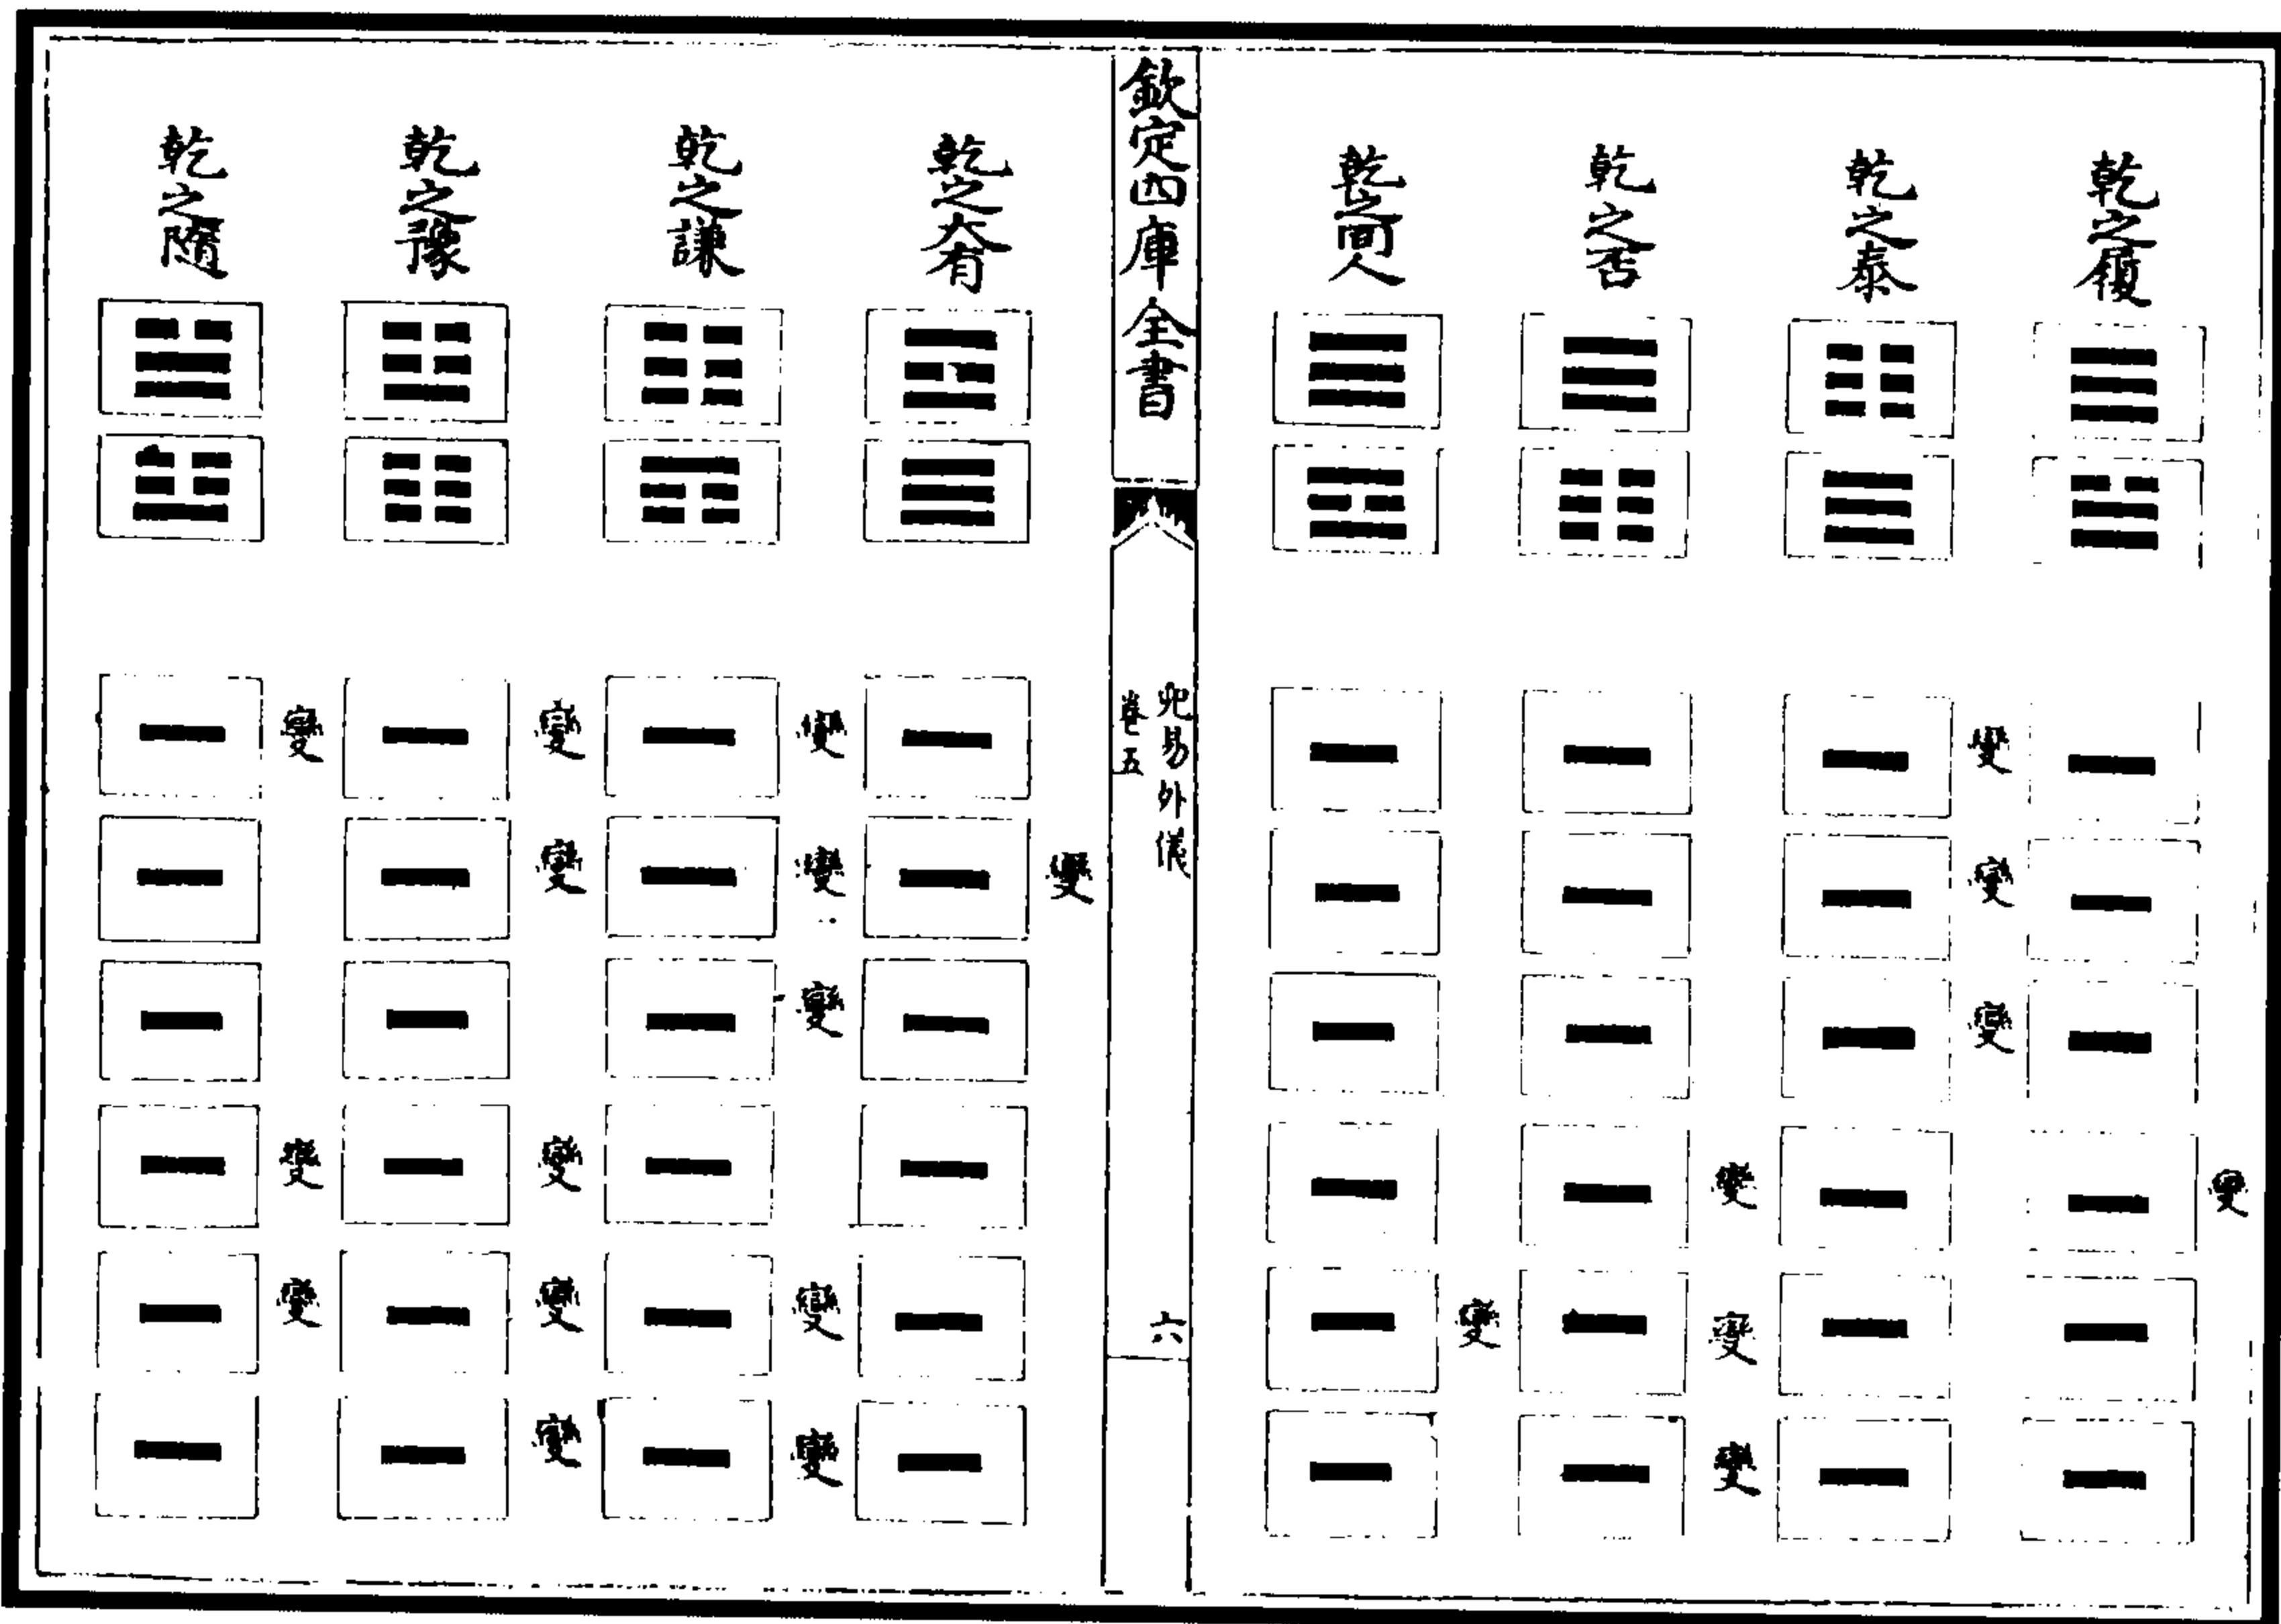 乾之履
變
乾之泰
變
變
變
乾之否
變
變
變
乾之同人
變
欽定四庫全書
兒易外儀
卷五
六
乾之大有
變
乾之謙
變
變
變
變
變
乾之豫
變
變
變
變
變
乾之隨
變
變
變